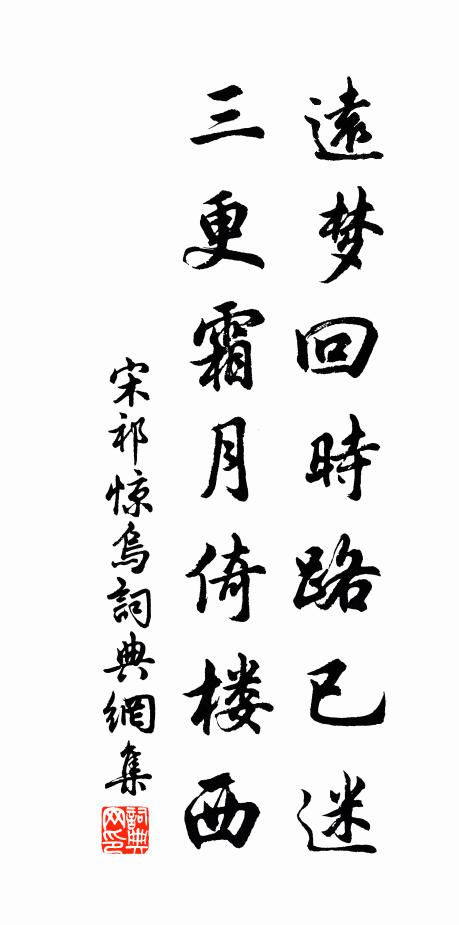 遠梦回時路已迷
三更霜月倚楼西
宋祁惊烏詞典網集
詞典网印